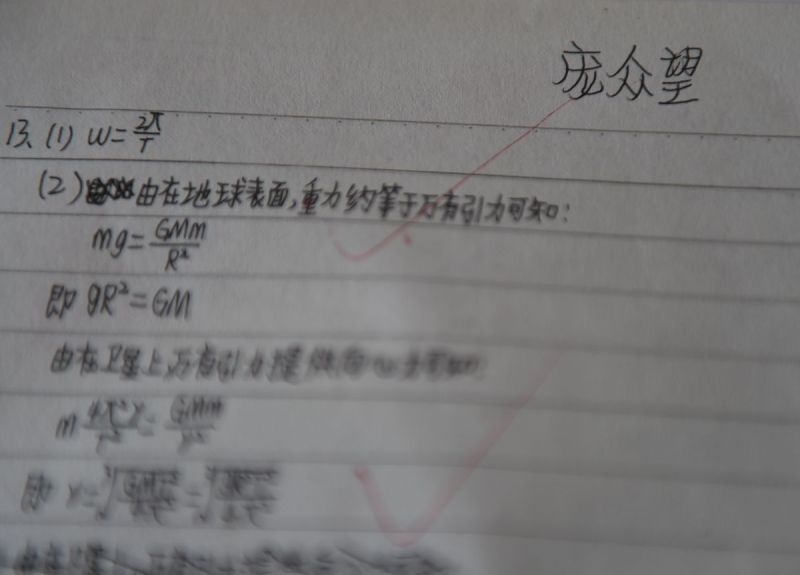 庞众望
13、(1) ω=2π/T
(2) 由在地球表面,重力约等于万有引力可知:
mg=GMm/R²
即 gR²=GM
由在卫星上万有引力提供向心力可知:
m 4π²r/T²=GMm/r²
即 r=